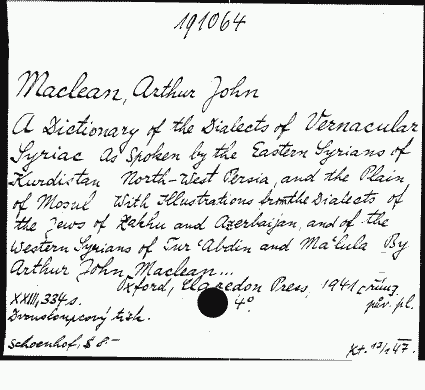 191064
Maclean, Arthur John
A Dictionary of the Dialects of Vernacular
Syriac As Spoken by the Eastern Syrians of
Kurdistan North-West Persia, and the Plain
of Mosul With Illustrations from the Dialects of
the Jews of Zakhu and Azerbaijan, and of the
Western Syrians of Tur ʿAbdin and Maʿlula By
Arthur John Maclean...
Oxford, Clarendon Press, 1941
XXIII, 334 s. 4°. pův. pl.
Dvousloupcový tisk.
Schoenhof, $ 8.-